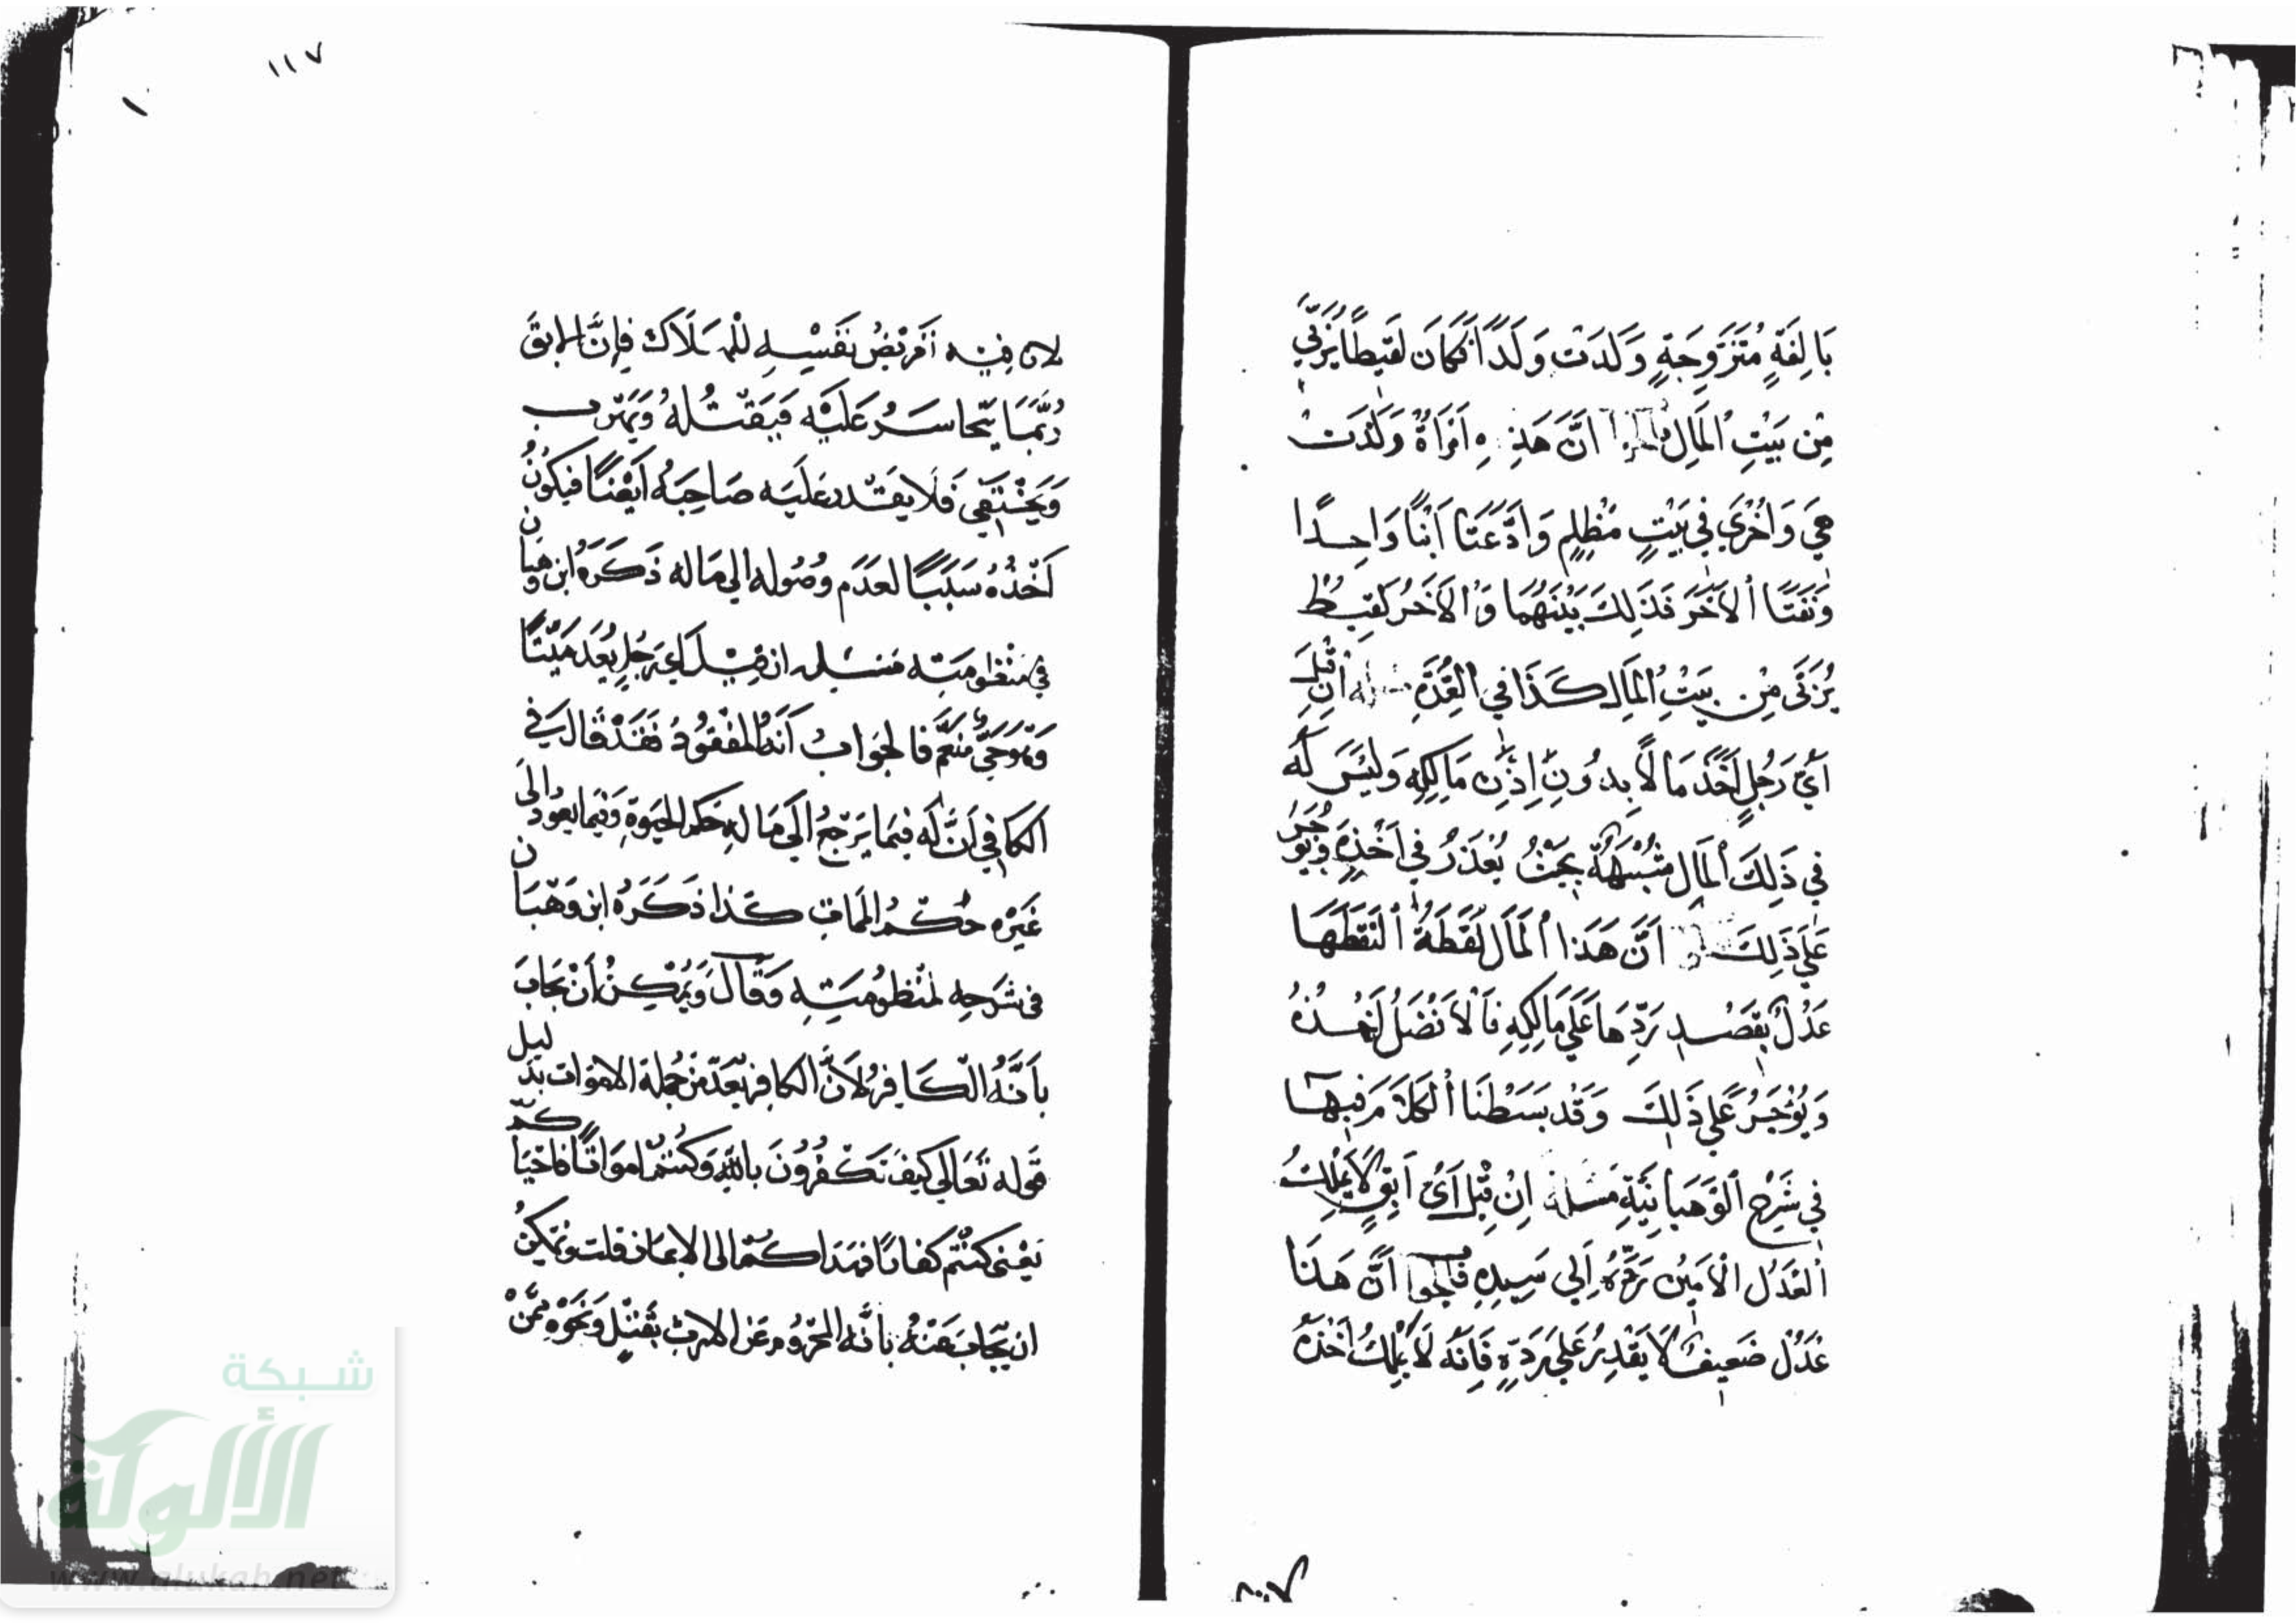 ١١٧
بَالِغَةٍ مُتَزَوِّجَةٍ وَلَدَتْ وَلَدًا فَكَانَ لَقِيطًا يُرَبَّى
مِن بَيْتِ الْمَالِ فالجواب اَنَّ هَذِهِ اَمْرَاةٌ وَلَدَتْ
هِيَ وَاُخْرَي فِي بَيْتٍ مُظْلِمٍ وَادَّعَتَا اَبْنًا وَاحِدًا
وَنَفَتَا الْاٰخَرَ فَذَلِكَ بَيْنَهُمَا وَالْاَخَرُ لَقِيطٌ
يُرَبَّى مِنْ بَيْتِ الْمَالِ كَذَا فِي الْعُدَّةِ مسئله اِن قِيلَ
اَيُّ رَجُلٍ اَخَذَ مَالًا بِدُونِ اِذْنِ مَالِكِهِ وَلَيْسَ لَهُ
فِي ذَلِكَ الْمَالِ شُبْهَةٌ بِحَيْثُ يُعْذَرُ فِي اَخْذِهِ وَيُوجَرُ
عَلَي ذَلِكَ فالجواب اَنَّ هَذَا الْمَالَ لُقَطَةٌ الْتَقَطَهَا
عَدْلٌ بِقَصْدِ رَدِّهَا عَلَي مَالِكِهِ فَالْاَفْضَلُ اَخْذُهُ
وَيُوْجَرُ عَلَي ذَلِكَ وَقَدْ بَسَطْنَا الْكَلَامَ فِيهَا
فِي شَرْحِ الْوَهْبَانِيَّةِ مَسْئلة اِنْ قِيْلَ اَيُّ اَبِقٍ لَا يَمْلِكُ
الْعَدْلُ الْاَمِينُ رَدَّهُ اِلَي سَيِّدِهِ فَالجوا اَنَّ هَذَا
عَدْلٌ ضَعِيفٌ لَا يَقْدِرُ عَلَي رَدِّهِ فَاِنَّهُ لَا يَمْلِكُ اَخْذَهُ
لان فِيْهِ تَعْرِيْضُ نَفْسِهِ لِلْهَلَاكِ فَاِنَّ الابِقَ
رُبَّمَا يَتَجَاسَرُ عَلَيْهِ فَيَقْتُلُهُ وَيَهْرَب
وَيَخْتَفِي فَلَا يَقْدر عَلَيْهِ صَاحِبُهُ اَيْضًا فَيَكُونُ
اَخْذُهُ سَبَبًا لعَدَمِ وُصُوله الي مَاله ذَكَرَهُ ابن وَهْبَان
فِي مَنْظُومَتِه مسئلة ان قِيْلَ اَي رَجُلٍ يُعَد مَيِّتًا
وَهُوَ حَيٌّ مُنَعَّم فَالْجَوَابُ اَنَّهُ الْمَفْقُوْدُ فَقَدْ قَالَ فِي
الكَافِي اَنَّ لَه فِيمَا يَرْجِعُ اِلَي مَالِهِ حُكْم الْحَيَوةِ وَفِيمَا يَعُودُ الَى
غَيْرِهِ حُكْمُ الْمَمَاتِ كَذَا ذَكَرَهُ ابْن وَهْبَان
فِي شَرْحِهِ لِمَنْظُومَتِهِ وَقَالَ وَيُمْكِنُ اَنْ يُجَابَ
بِاَنَّهُ الْكَافِرُ لِاَنَّ الكافِرَ يُعَدّ مِنْ جُملة الاموَات بدَليل
قَوله تَعَالَي كَيْفَ تَكْفُرُونَ بِاللَّهِ وَكُنْتُمْ اَموَاتًا فَاَحْيَاكُمْ
يَعْنِي كُنْتُم كفارًا فَهَدَاكُمْ الى الايمَان قلت وَيُمْكِنُ
ان يُجَابَ عَنْهُ بِاَنَّه الْمَحْرُومُ عَن الارث بِقَتْلٍ وَنَحْوِهِ مِمَّنْ
شبكة
الألوكة
www.alukah.net